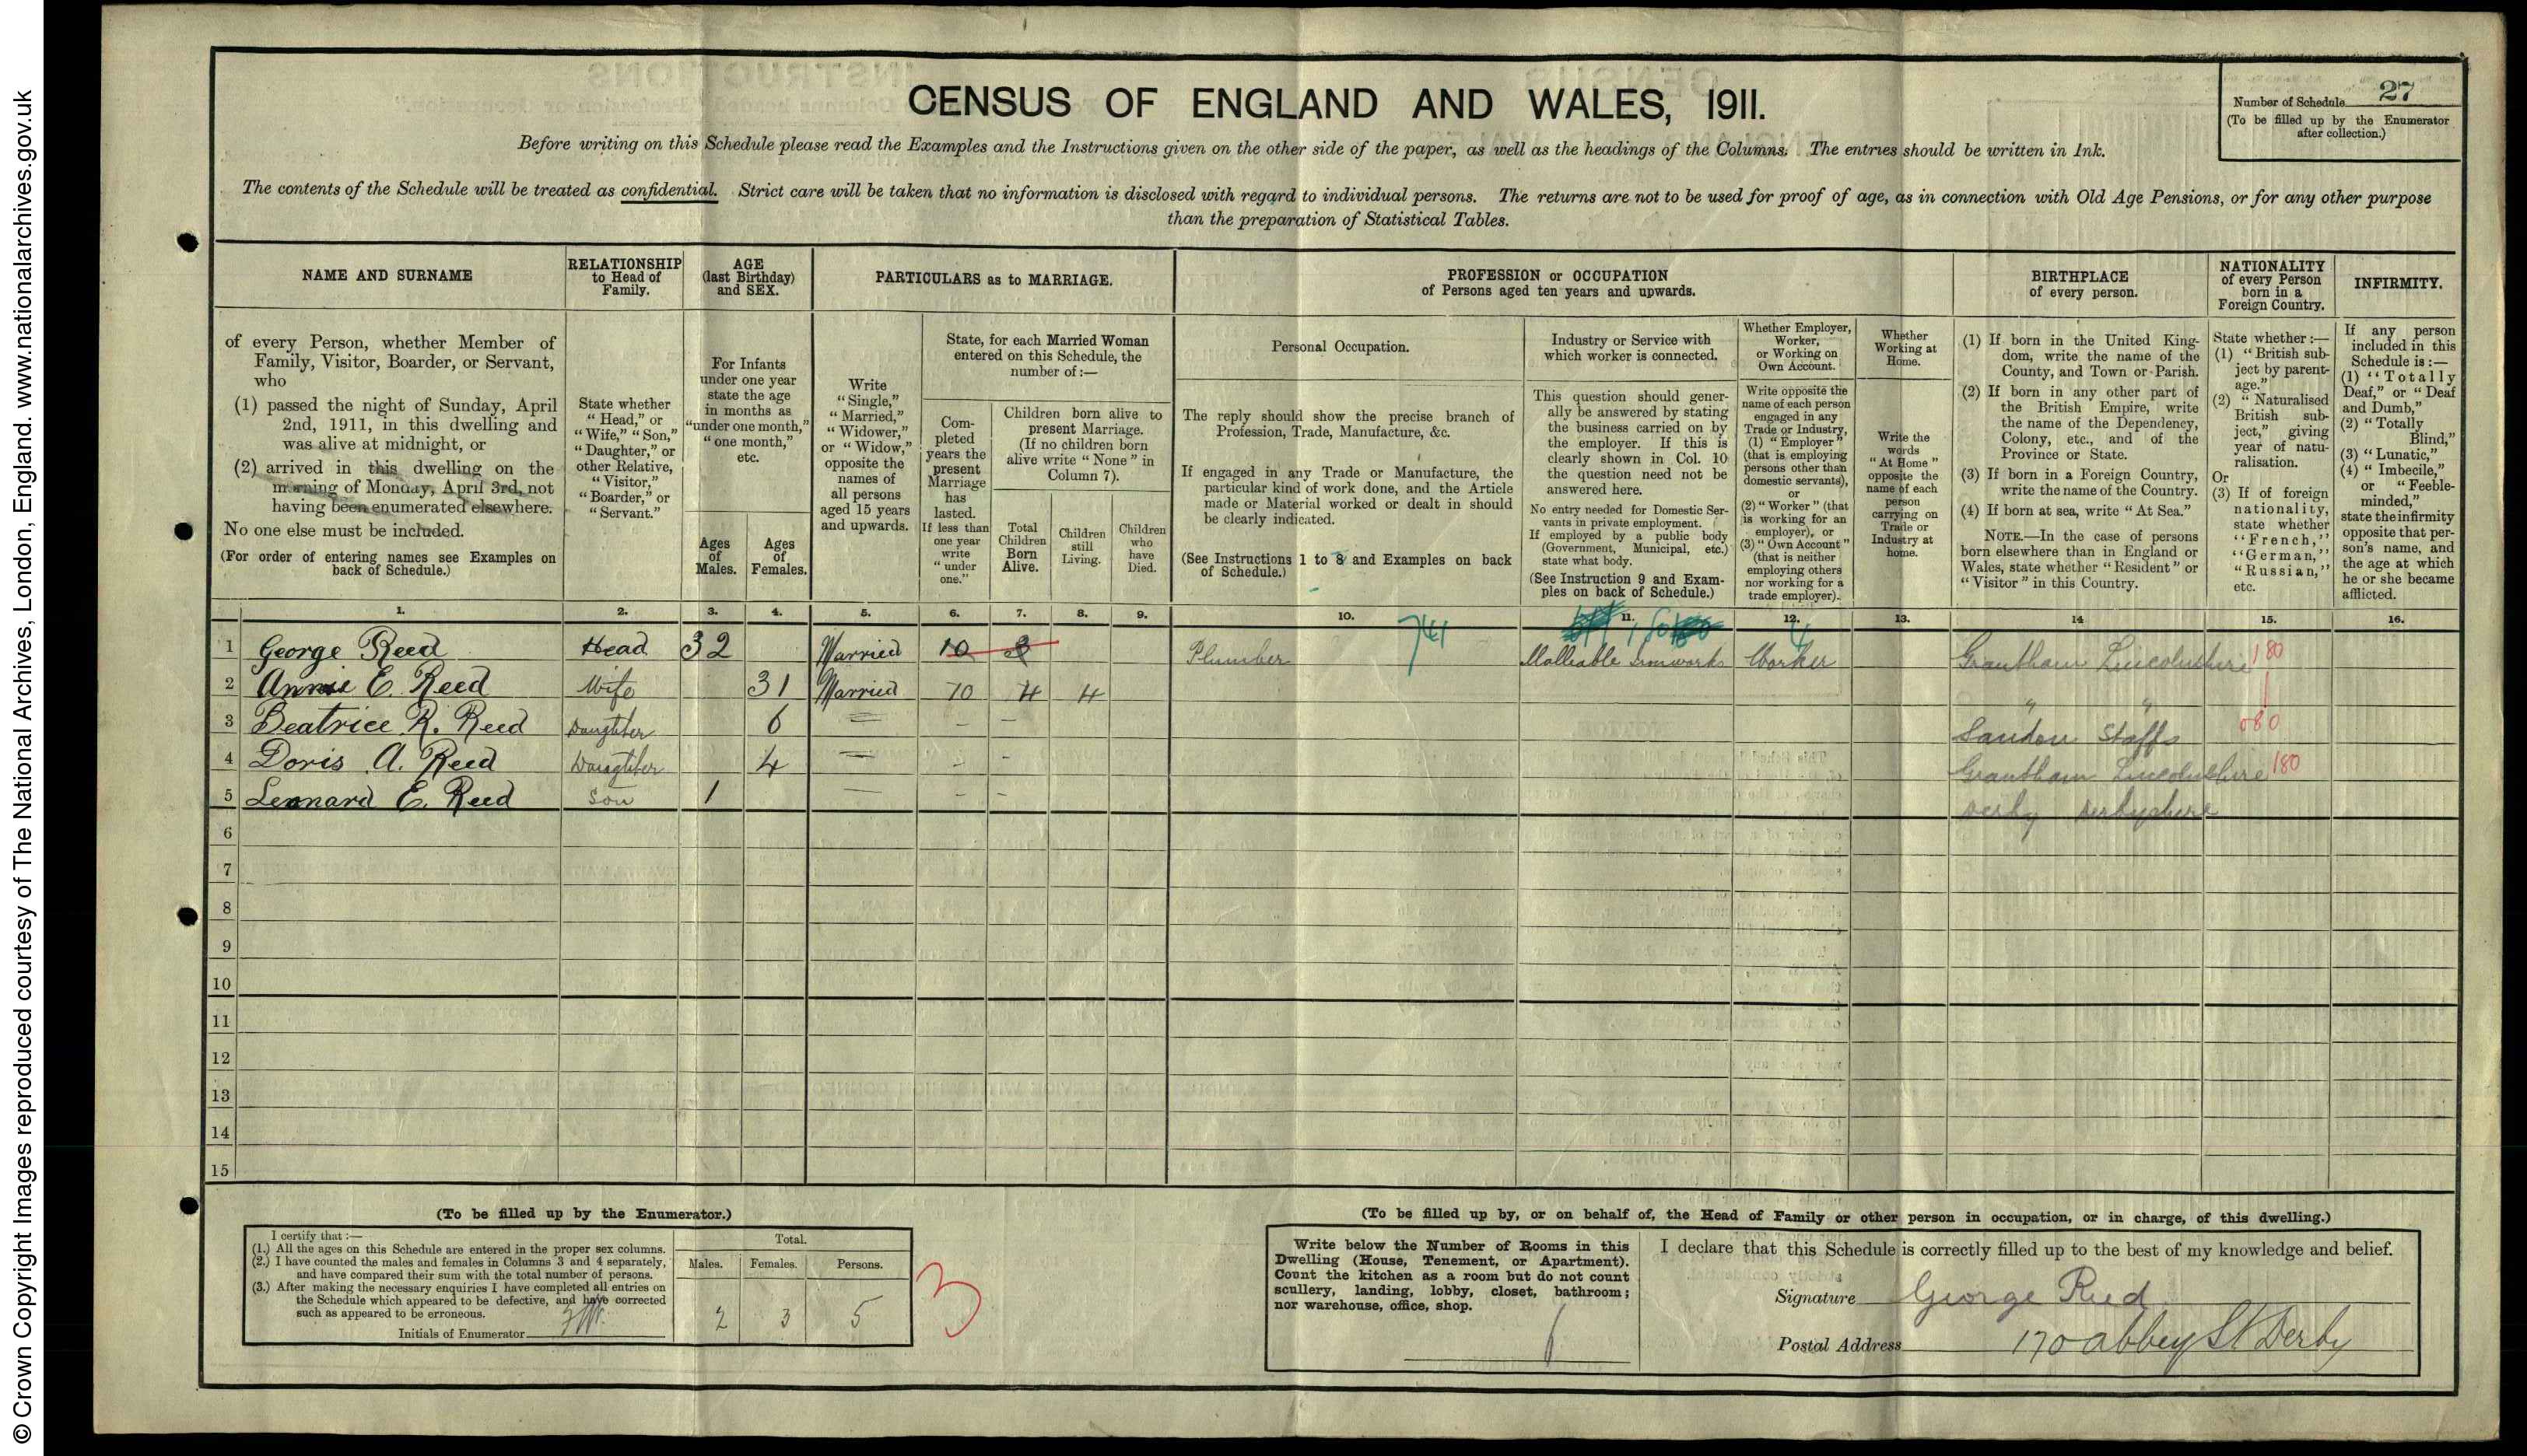 © Crown Copyright Images reproduced courtesy of The National Archives, London, England. www.nationalarchives.gov.uk
CENSUS OF ENGLAND AND WALES, 1911.
Number of Schedule 27
(To be filled up by the Enumerator
after collection.)
Before writing on this Schedule please read the Examples and the Instructions given on the other side of the paper, as well as the headings of the Columns. The entries should be written in Ink.
The contents of the Schedule will be treated as confidential. Strict care will be taken that no information is disclosed with regard to individual persons. The returns are not to be used for proof of age, as in connection with Old Age Pensions, or for any other purpose
than the preparation of Statistical Tables.
NAME AND SURNAME
of every Person, whether Member of
Family, Visitor, Boarder, or Servant,
who
(1) passed the night of Sunday, April
2nd, 1911, in this dwelling and
was alive at midnight, or
(2) arrived in this dwelling on the
morning of Monday, April 3rd, not
having been enumerated elsewhere.
No one else must be included.
(For order of entering names see Examples on
back of Schedule.)
RELATIONSHIP
to Head of
Family.
State whether
"Head," or
"Wife," "Son,"
"Daughter," or
other Relative,
"Visitor,"
"Boarder," or
"Servant."
AGE
(last Birthday)
and SEX.
For Infants
under one year
state the age
in months as
"under one month,"
"one month,"
etc.
Ages
of
Males.
Ages
of
Females.
PARTICULARS as to MARRIAGE.
Write
"Single,"
"Married,"
"Widower,"
or "Widow,"
opposite the
names of
all persons
aged 15 years
and upwards.
State, for each Married Woman
entered on this Schedule, the
number of :—
Com-
pleted
years the
present
Marriage
has
lasted.
If less than
one year
write
"under
one."
Children born alive to
present Marriage.
(If no children born
alive write "None" in
Column 7).
Total
Children
Born
Alive.
Children
still
Living.
Children
who
have
Died.
PROFESSION or OCCUPATION
of Persons aged ten years and upwards.
Personal Occupation.
The reply should show the precise branch of
Profession, Trade, Manufacture, &c.
If engaged in any Trade or Manufacture, the
particular kind of work done, and the Article
made or Material worked or dealt in should
be clearly indicated.
(See Instructions 1 to 8 and Examples on back
of Schedule.)
Industry or Service with
which worker is connected.
This question should gener-
ally be answered by stating
the business carried on by
the employer. If this is
clearly shown in Col. 10
the question need not be
answered here.
No entry needed for Domestic Ser-
vants in private employment.
If employed by a public body
(Government, Municipal, etc.)
state what body.
(See Instruction 9 and Exam-
ples on back of Schedule.)
Whether Employer,
Worker,
or Working on
Own Account.
Write opposite the
name of each person
engaged in any
Trade or Industry,
(1) "Employer"
(that is employing
persons other than
domestic servants),
or
(2) "Worker" (that
is working for an
employer), or
(3) "Own Account"
(that is neither
employing others
nor working for a
trade employer).
Whether
Working at
Home.
Write the
words
"At Home"
opposite the
name of each
person
carrying on
Trade or
Industry at
home.
BIRTHPLACE
of every person.
(1) If born in the United King-
dom, write the name of the
County, and Town or Parish.
(2) If born in any other part of
the British Empire, write
the name of the Dependency,
Colony, etc., and of the
Province or State.
(3) If born in a Foreign Country,
write the name of the Country.
(4) If born at sea, write "At Sea."
NOTE.—In the case of persons
born elsewhere than in England or
Wales, state whether "Resident" or
"Visitor" in this Country.
NATIONALITY
of every Person
born in a
Foreign Country.
State whether :—
(1) "British sub-
ject by parent-
age."
(2) "Naturalised
British sub-
ject," giving
year of natu-
ralisation.
Or
(3) If of foreign
nationality,
state whether
"French,"
"German,"
"Russian,"
etc.
INFIRMITY.
If any person
included in this
Schedule is :—
(1) "Totally
Deaf," or "Deaf
and Dumb,"
(2) "Totally
Blind,"
(3) "Lunatic,"
(4) "Imbecile,"
or "Feeble-
minded,"
state the infirmity
opposite that per-
son's name, and
the age at which
he or she became
afflicted.
1. 2. 3. 4. 5. 6. 7. 8. 9. 10. 11. 12. 13. 14 15. 16.
741 4
1 George Reed Head 32 Married 10 3 Plumber Malleable Ironworks Worker Grantham Lincolnshire 180
2 Annie E. Reed Wife 31 Married 10 4 4 " "
3 Beatrice R. Reed Daughter 6 — — — Sandon Staffs 080
4 Doris A. Reed Daughter 4 — — — Grantham Lincolnshire 180
5 Lennard E. Reed Son 1 — — — Derby Derbyshire
6
7
8
9
10
11
12
13
14
15
(To be filled up by the Enumerator.)
I certify that :—
(1.) All the ages on this Schedule are entered in the proper sex columns.
(2.) I have counted the males and females in Columns 3 and 4 separately,
and have compared their sum with the total number of persons.
(3.) After making the necessary enquiries I have completed all entries on
the Schedule which appeared to be defective, and have corrected
such as appeared to be erroneous.
Initials of Enumerator
Total.
Males. Females. Persons.
2 3 5
3
(To be filled up by, or on behalf of, the Head of Family or other person in occupation, or in charge, of this dwelling.)
Write below the Number of Rooms in this
Dwelling (House, Tenement, or Apartment).
Count the kitchen as a room but do not count
scullery, landing, lobby, closet, bathroom;
nor warehouse, office, shop.
6
I declare that this Schedule is correctly filled up to the best of my knowledge and belief.
Signature George Reed
Postal Address 170 Abbey St Derby